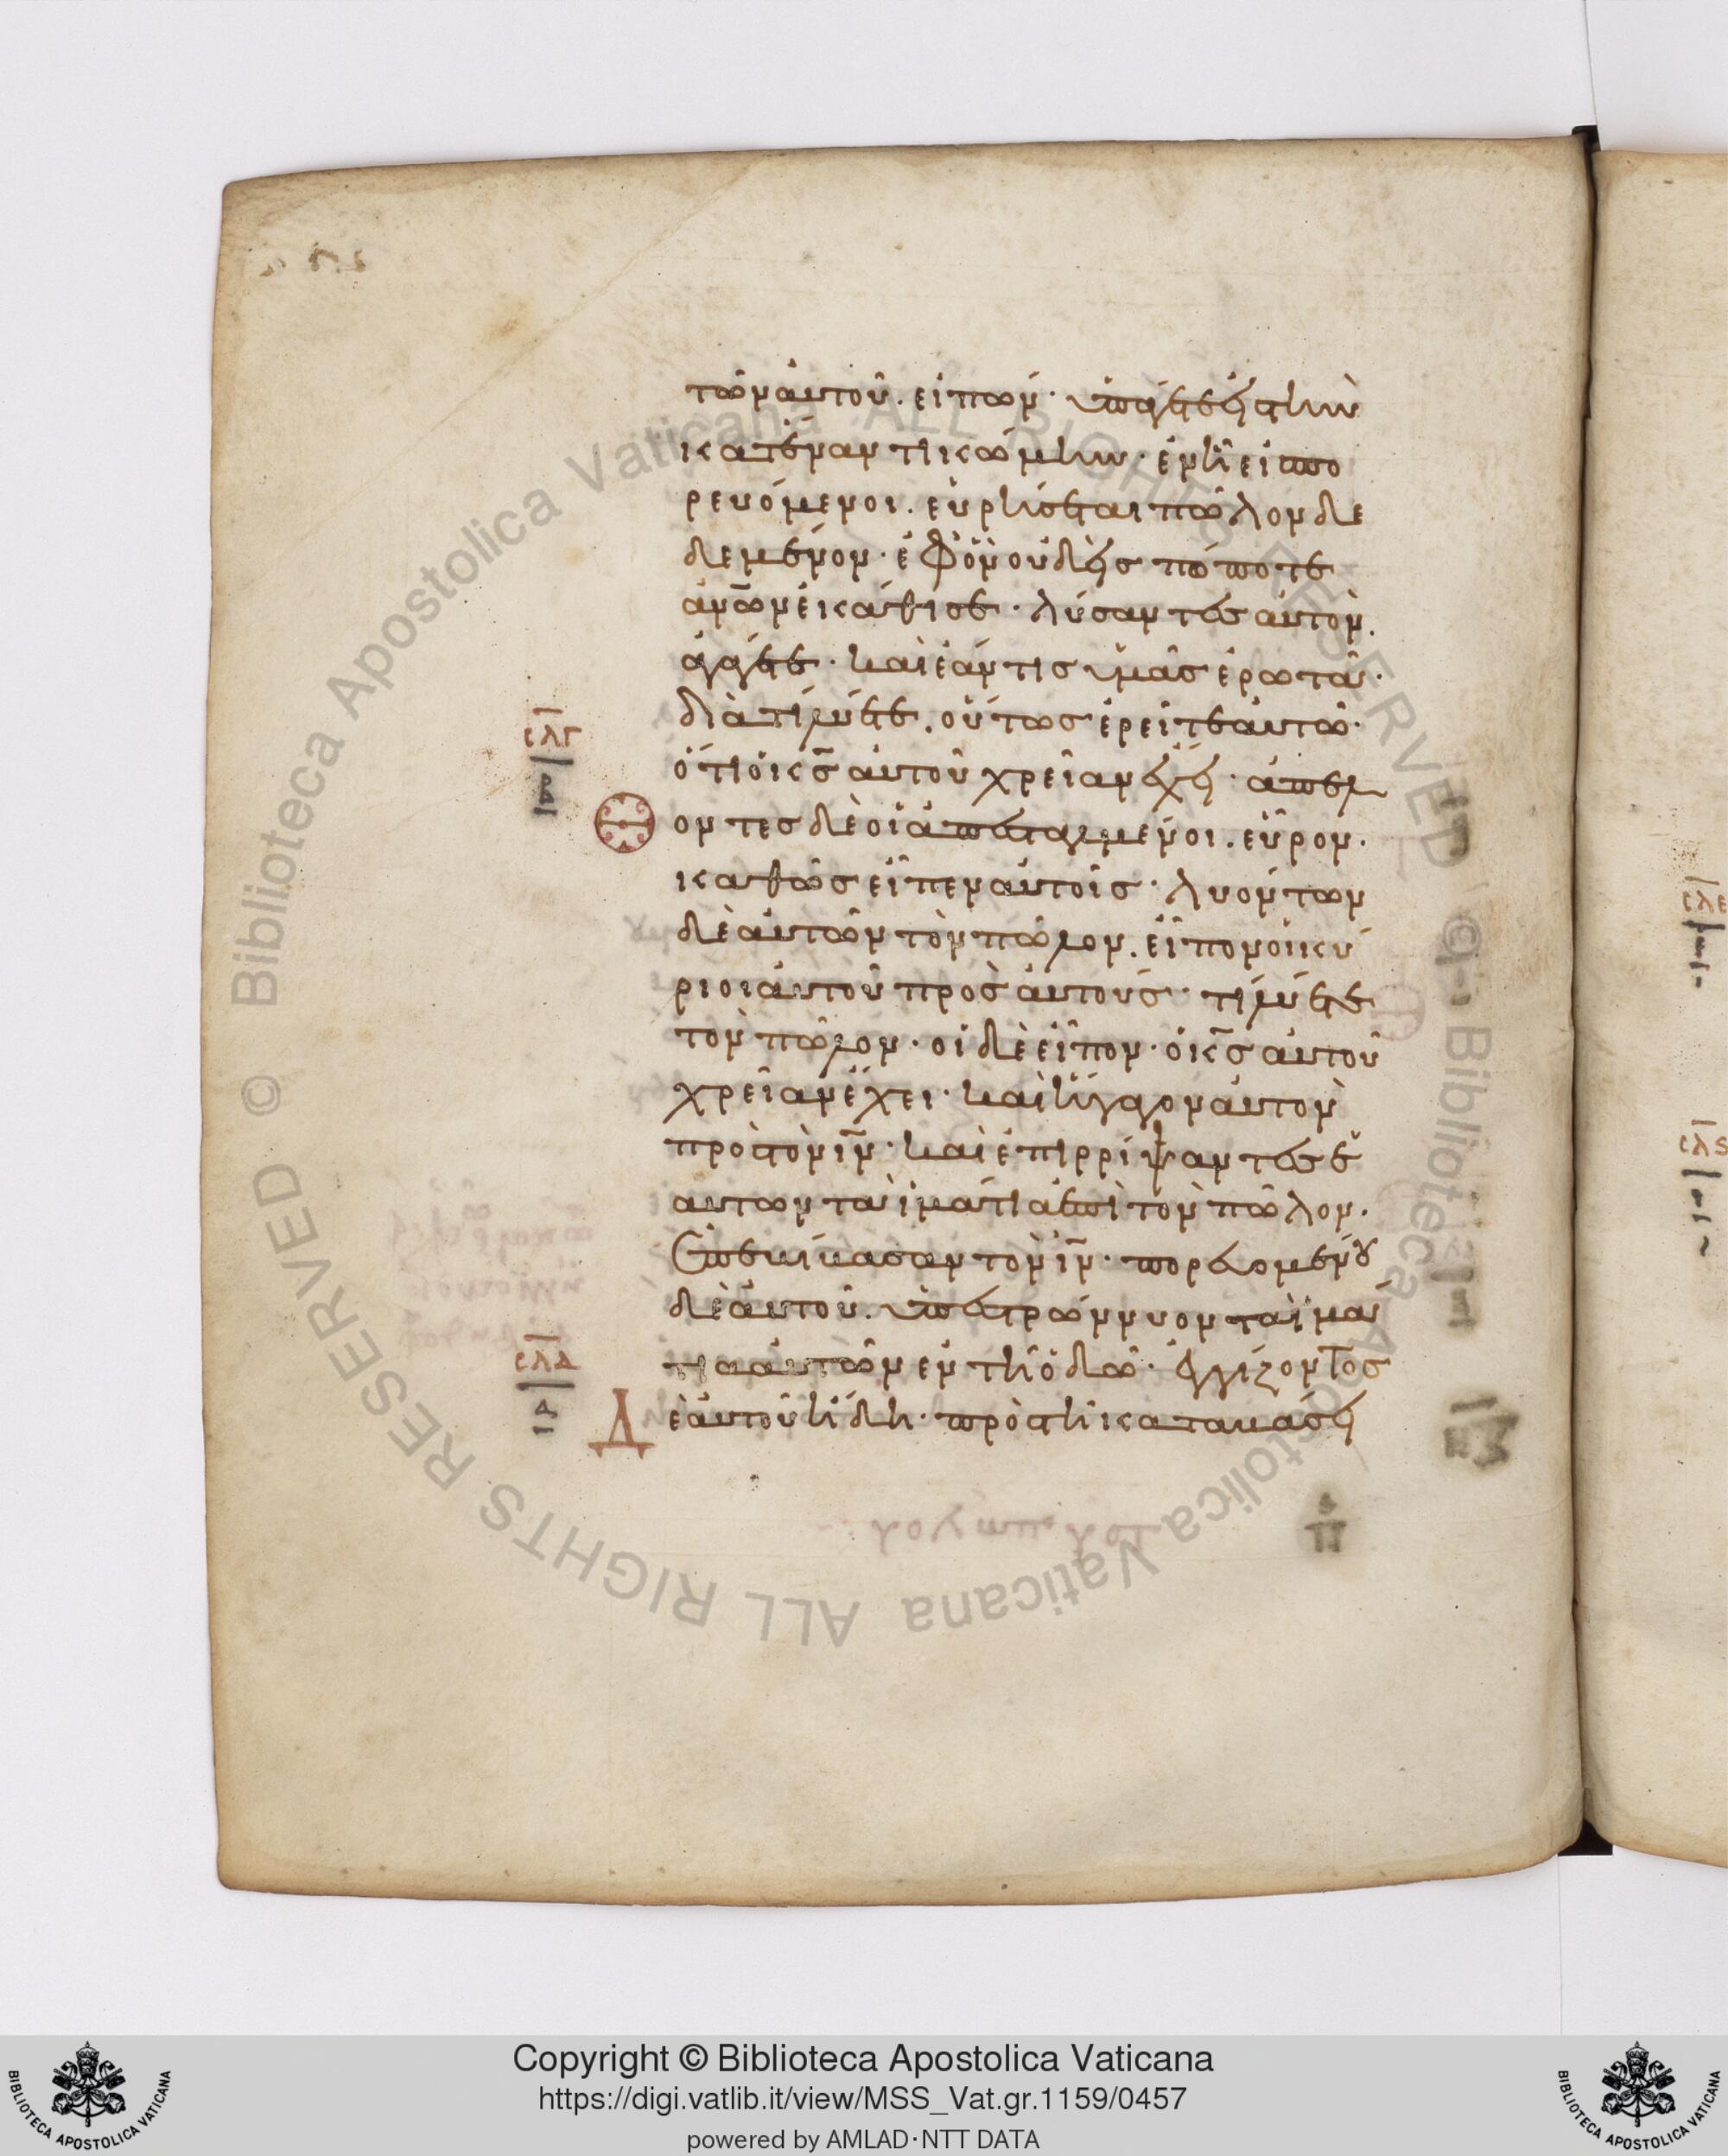 τῶν αὐτοῦ. εἰπών· ὑπάγετε εἰς τὴν
κατέναντι κώμην· ἐν ᾗ εἰσπο
ρευόμενοι. εὑρήσεται πῶλον δε
δεμένον· ἐφ' ὃν οὐδεὶς πώποτε
ἀν̅ων ἐκάθισε· λύσαντες αὐτὸν.
ἀγάγετε· καὶ ἐάν τις ὑμᾶς ἐρωτᾶ·
διατί λύετε. οὕτως ἐρεῖτε αὐτῶ·
ὅτι ὁ κ̅ς αὐτοῦ χρεῖαν ἔχει· ἀπελθ
όντες δὲ οἱ ἀπεσταλμένοι. εὗρον·
καθὼς εἶπεν αὐτοῖς· λυόντων
δὲ αὐτῶν τὸν πῶλον. εἶπον οἱ κύ
ριοι αὐτοῦ πρὸς αὐτούς· τί λύετε
τὸν πῶλον· οἱ δὲ εἶπον· ὁ κ̅ς αὐτοῦ
χρεῖαν ἔχει· καὶ ἤγαγον αὐτὸν
πρὸς τὸν ι̅ν· καὶ ἐπιρρίψαντες ἑ
αυτῶν τὰ ἱμάτια ἐπὶ τὸν πῶλον.
ἐπεβίβασαν τὸν ι̅ν· πορευομένου
δὲ αὐτοῦ. ὑπεστρώννυον τὰ ἱμά
τια αὐτῶν ἐν τῆ ὁδῶ· ἐγγίζοντος
Δὲ αὐτοῦ ἤδη· πρὸς τῆ καταβάσει
σλγ
β
σλδ
α
σλε
σλς
Copyright © Biblioteca Apostolica Vaticana
https://digi.vatlib.it/view/MSS_Vat.gr.1159/0457
powered by AMLAD·NTT DATA
BIBLIOTECA APOSTOLICA VATICANA
BIBLIOTECA APOSTOLICA VATICANA
© Biblioteca Apostolica Vaticana ALL RIGHTS RESERVED © Biblioteca Apostolica Vaticana ALL RIGHTS RESERVED